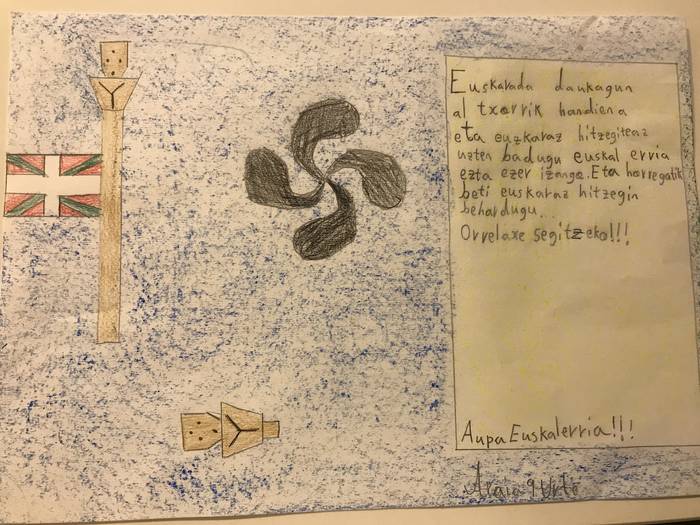 Euskarada daukagun
altxorrik handiena
eta euzkaraz hitzegiteaz
uzten badugu euskal erria
ezta ezer izango. Eta horregatik
beti euskaraz hitzegin
behardugu...
Orrelaxe segitzeko!!!
Aupa Euskalerria!!!
Araia 9 urte